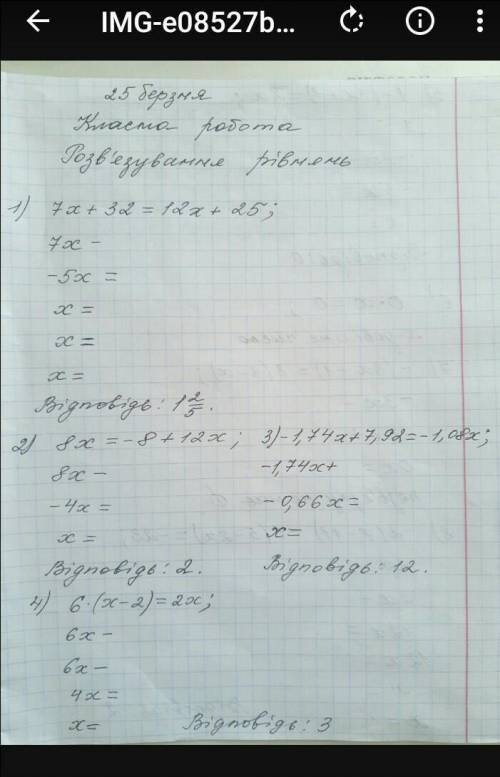 IMG-e08527b...
25 берзня
Класна робота
Розв'езування рівнянь
1) 7x + 32 = 12x + 25;
7x -
-5x =
x =
x =
x =
Відповідь: 1 2/5.
2) 8x = -8 + 12x; 3) -1,74x + 7,92 = -1,08x;
8x - -1,74x +
-4x = -0,66x =
x = x =
Відповідь: 2. Відповідь: 12.
4) 6·(x-2) = 2x;
6x -
6x -
4x =
x = Відповідь: 3